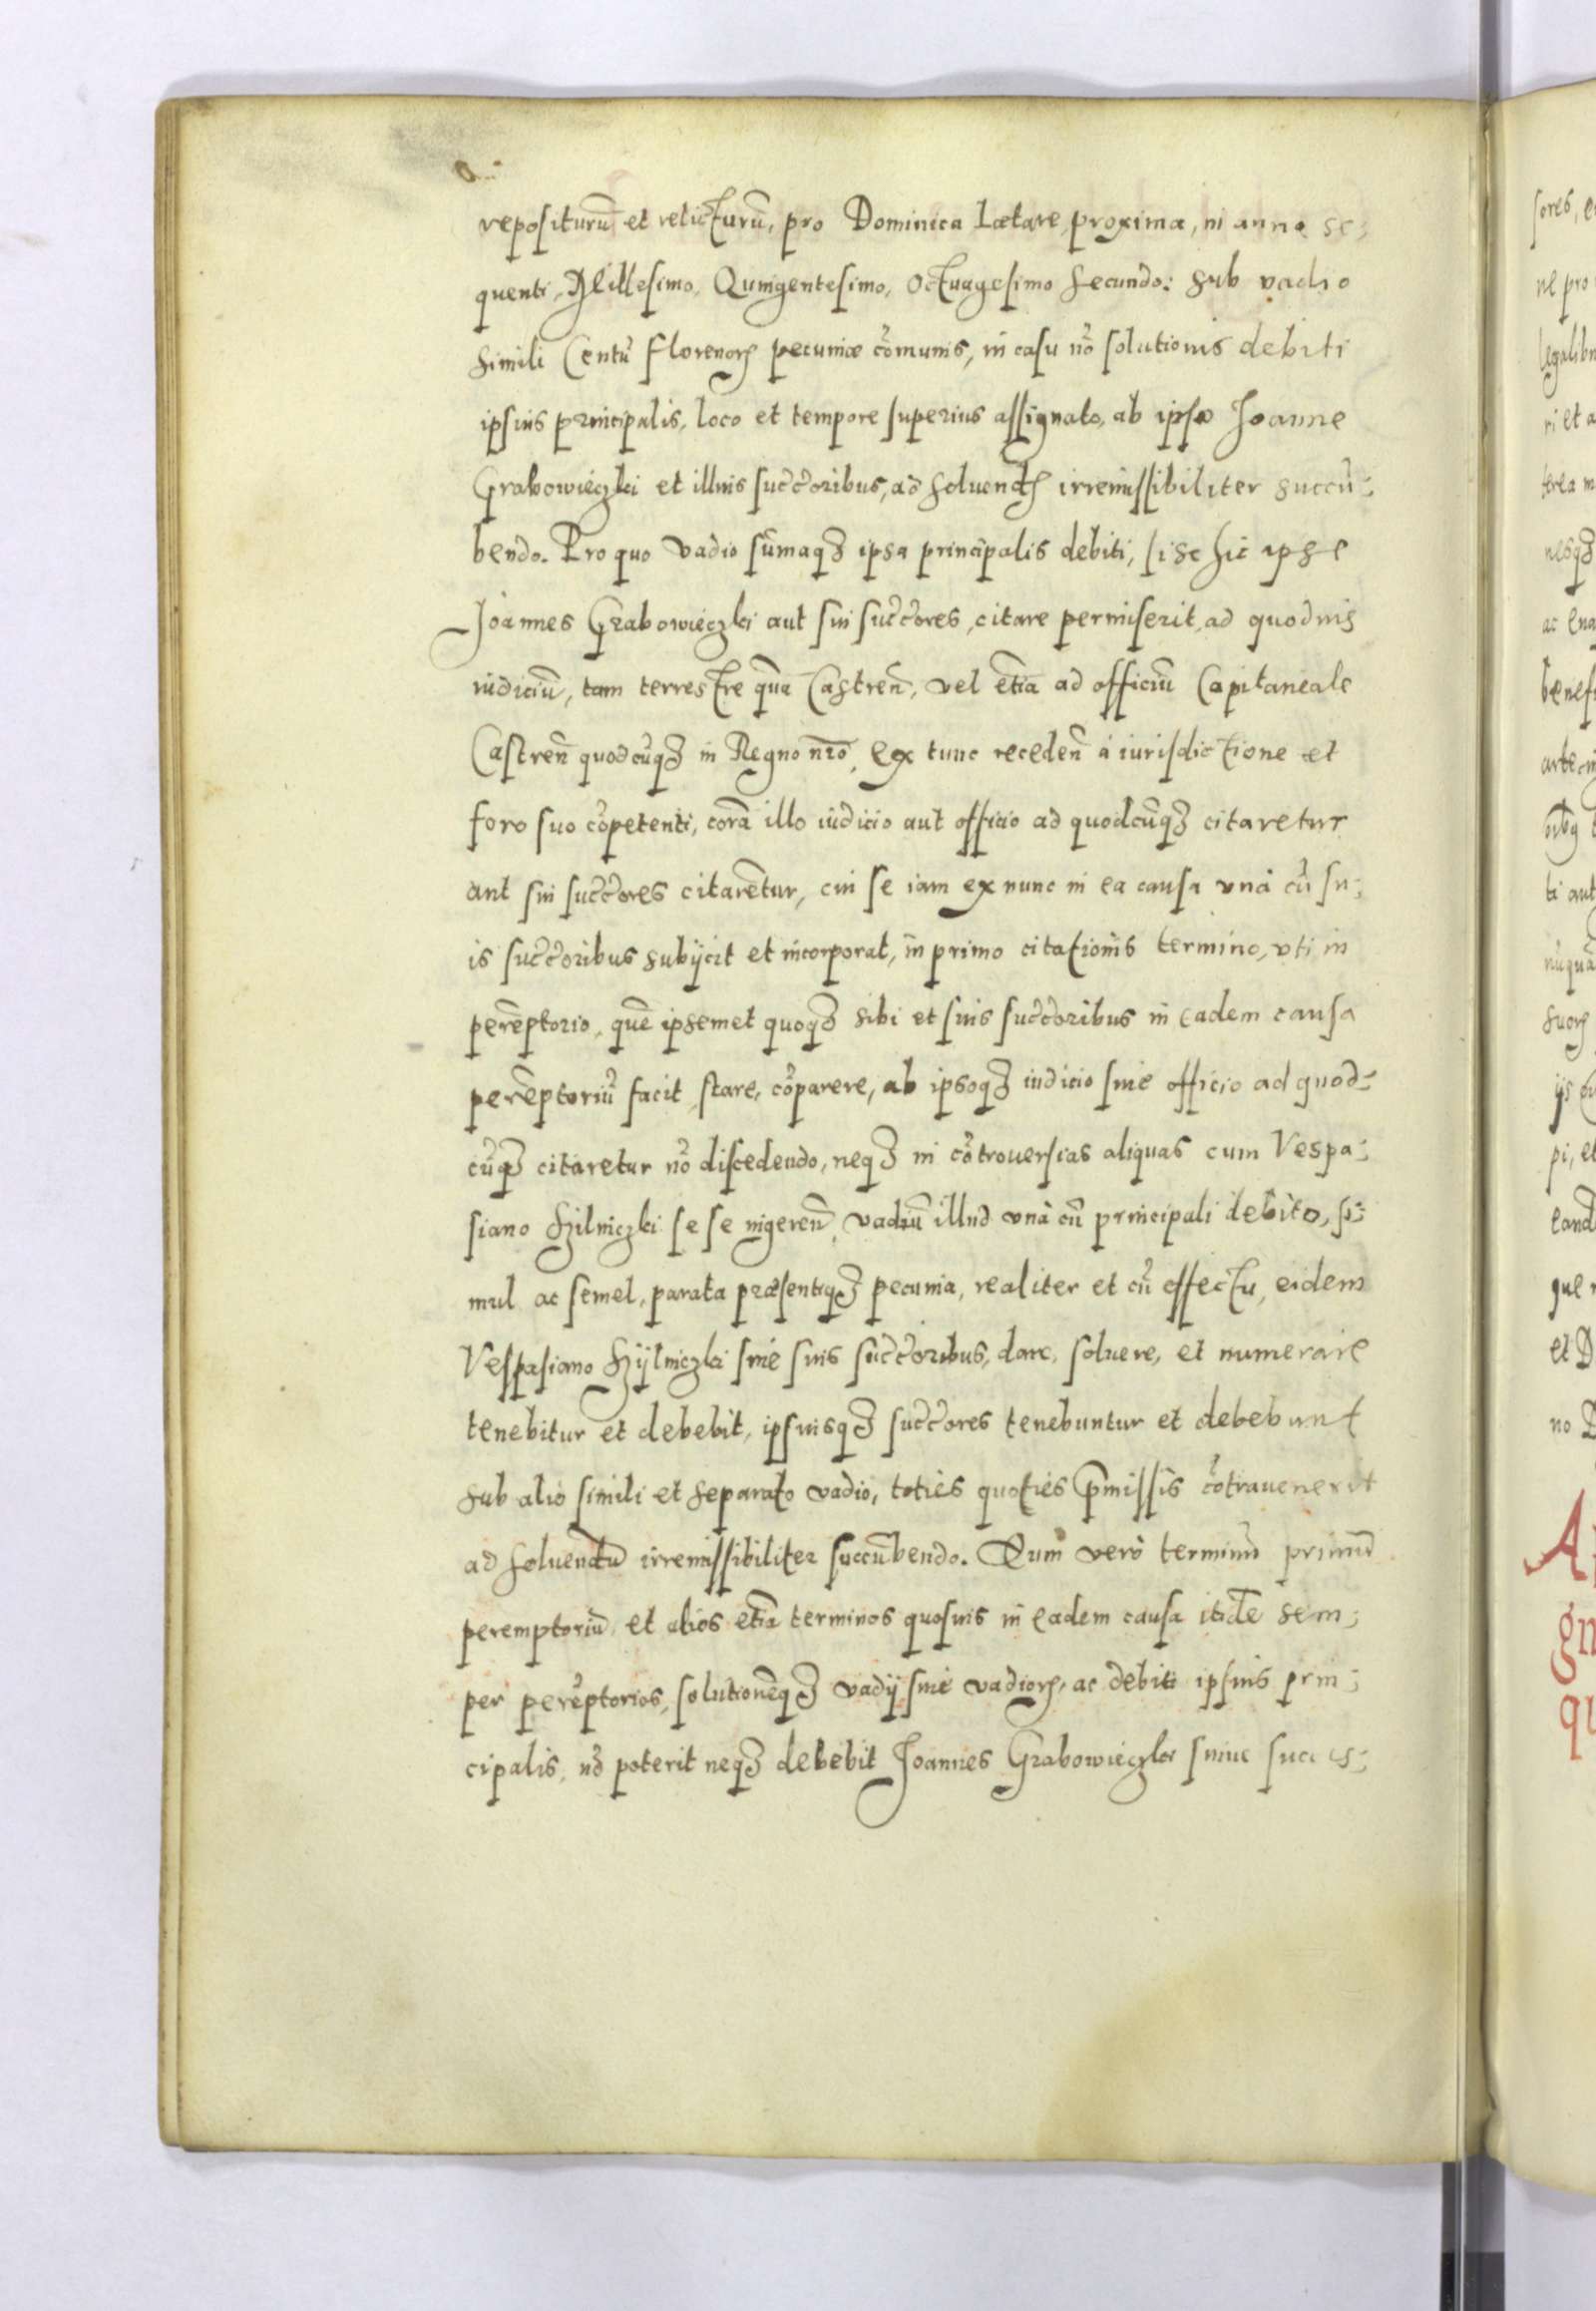 repositurū et relicturū, pro Dominica Lætare proxima, in anno se;
quenti, Millesimo, Quingentesimo, Octuagesimo secundo: sub vadio
simili Centū florenorꝝ pecuniæ cōmunis, in casu nō solutionis debiti
ipsius principalis, loco et tempore superius assignato, ab ipso Joanne
Grabowieczki et illius succ̄oribus, ad soluendꝝ irremissibiliter succū:
bendo. Pro quo vadio sūmaqꝫ ipsa principalis debiti, si se hic ipse
Joannes Grabowieczki aut sui succ̄ores, citare permiserit, ad quoduis
iudiciū, tam terrestre quā Castreñ, vel etiā ad officiū Capitaneale
Castreñ quodcūqꝫ in Regno nr̄o, ex tunc recedeñ à iurisdictione et
foro suo cōpetenti, corā illo iudicio aut officio ad quodcūqꝫ citaretur
aut sui succ̄ores citarētur, cui se iam ex nunc in ea causa vnà cū su:
is succ̄oribus subijcit et incorporat, in primo citationis termino, vti in
perēptorio, quē ipsemet quoqꝫ sibi et suis succ̄oribus in eadem causa
perēptoriū facit, stare, cōparere, ab ipsoqꝫ iudicio siue officio ad quod:
cūqꝫ citaretur nō discedendo, neqꝫ in cōtrouersias aliquas cum Vespa:
siano Szilniczki se se ingereñ, vadiū illud vnà cū principali debito, si:
mul ac semel, parata præsentiqꝫ pecunia, realiter et cū effectu, eidem
Vespasiano Szÿlniczki siue suis succ̄oribus, dare, soluere, et numerare
tenebitur et debebit, ipsiusqꝫ succ̄ores tenebuntur et debebunt
sub alio simili et separato vadio, toties quoties p̄missis cōtrauenerit
ad soluendū irremissibiliter succūbendo. Quem verò terminū primū
peremptoriū, et alios etiā terminos quosuis in eadem causa itidē sem;
per perēptorios, solutionēqꝫ vadij siue vadiorꝝ, ac debiti ipsius prin;
cipalis, nō poterit neqꝫ debebit Joannes Grabowieczki suiue succes: